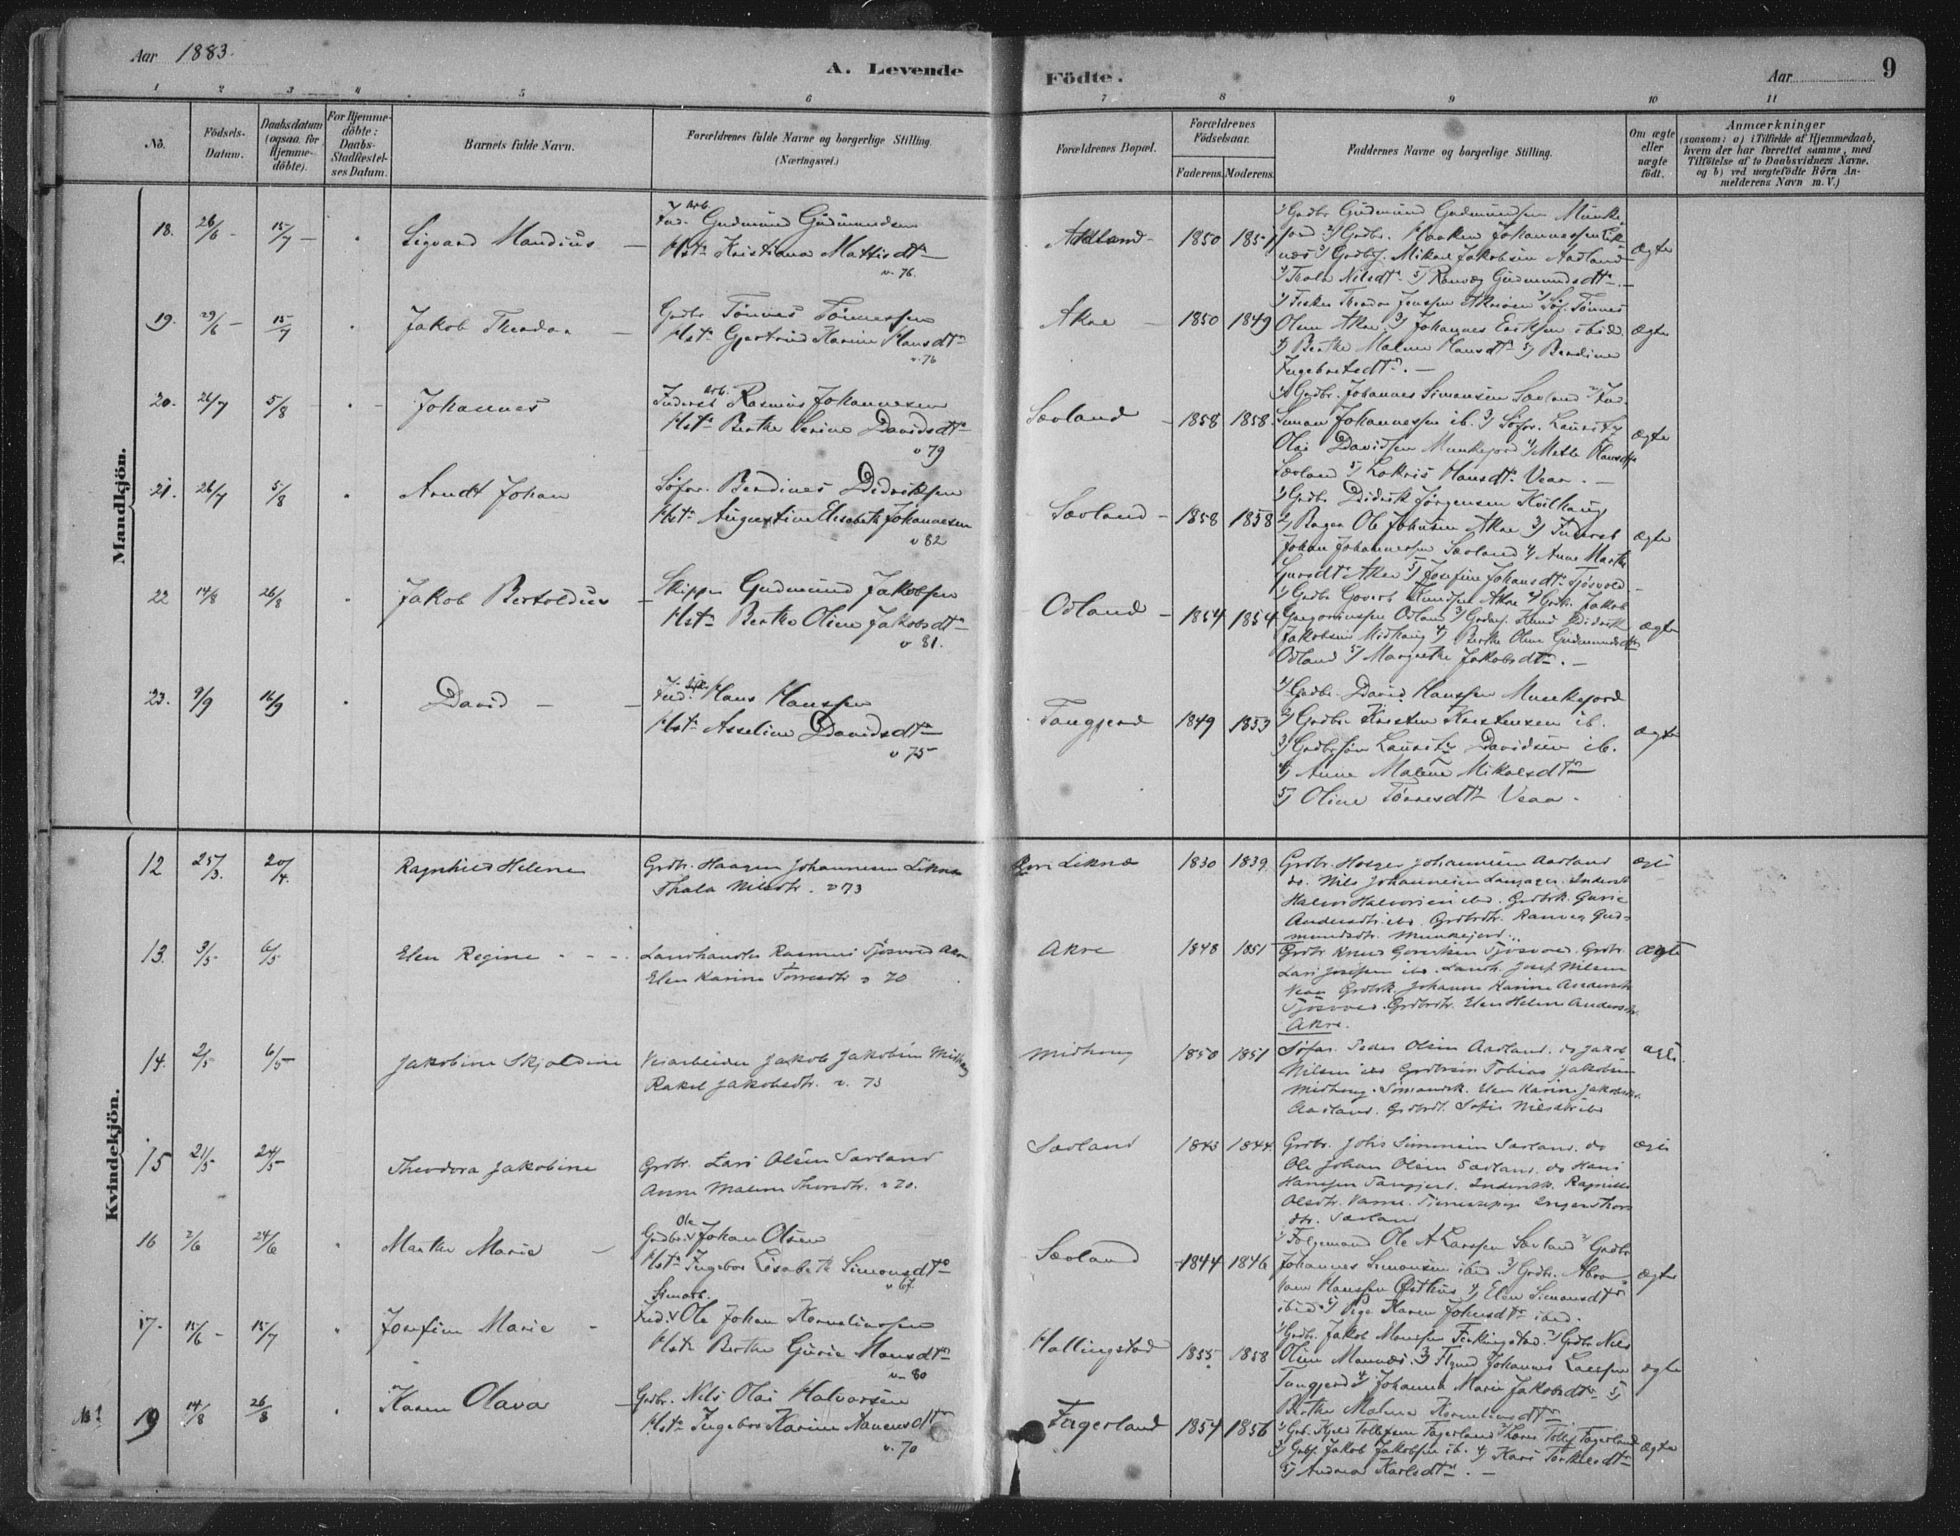 Aar 1883.
A. Levende
Födte.
Aar
9
1 2 3 4 5 6 7 8 9 10 11
No.
Födsels-
Datum.
Daabsdatum
(ogsaa for
Hjemme-
döbte).
For Hjemme-
döbte:
Daabs-
Stadfæstel-
ses Datum.
Barnets fulde Navn.
Forældrenes fulde Navne og borgerlige Stilling.
(Næringsvei.)
Forældrenes Bopæl.
Forældrenes
Födselsaar.
Faderens. Moderens.
Faddernes Navne og borgerlige Stilling.
Om ægte
eller
uægte
födt.
Anmærkninger
(saasom: a) i Tilfælde af Hjemmedaab,
hvem der har forrettet samme, med
Tilföielse af to Daabsvidners Navne.
og b) ved uægtefödte Börn An-
melderens Navn m. V.)
Mandkjön.
18. 26/6 15/7 Sigvard Mandius
Gudmund Gudmundsen
Hst. Kristiana Mattisdtr
v. 76.
Aadland 1850 1851
1) Grdbr Gudmund Gudmundsen Munke-
jord 2) Grdbr. Haaken Johannessen Lik-
næs 3) Grdbrs. Mikael Jakobsen Aadland
4) Thala Nilsdtr. 5) Ranveg Gudmundsdtr.
ægte
19. 29/6 15/7 Jakob Theodor
Grdbr Tönnes Tönnessen
Hst. Gjertrud Karine Hansdtr
v. 76
Akre 1850 1849
1) Fisker Theodor Jenssen Akreöen 2) Söf. Tönnes
Olsen Akre. 3) Johannes Eriksen ibid.
4) Berthe Malene Hansdtr 5) Berdine
Ingebretsdtr.
ægte
20. 26/7 5/8 Johannes
Inderst Rasmus Johannesen
Hst. Berthe Serine Davidsdtr
v 79
Sævland 1858 1858
1) Grdbr. Johannes Simonsen Sævland 2) Ind.
Simon Johannessen ib. 3) Söfor. Lauritz
Olai Davidsen Munkejord 4) Mette Olausdtr
Sævland 5) Lakris Hansdtr Veaa.
ægte
21. 26/7 5/8 Arndt Johan
Söfor. Berdines Didriksen
Hst. Augustine Elisabeth Johannesen
v 82
Sævland 1858 1858
1) Grdbr Didrik Jørgensen Kvilhaug
2) Bager Ole Johnsen Akre 3) Inderst
Johan Johannessen Sævland 4) Anne Marthe
Guredtr Akre 5) Josefine Johansdtr Tjøsvold
ægte
22 14/8 26/8 Jakob Bertoldus
Skipper Gudmund Jakobsen
Hst. Berthe Oline Jakobsdtr
v 81.
Odland 1854 1854
1) Grdbr Govert Knudsen Akre 2) Grdbr. Jakob
Gregoriussen Odland 3) Grdbrs. Knud Didrik
Jakobsen Midhaug 4) Berthe Oline Gudmundsdtr
Odland 5) Margrethe Jakobsdtr.
ægte
23. 9/9 16/9 David
Ind. Hans Hanssen
Hst. Asseline Davidsdtr
v 75
Tangjerd 1849 1853
1) Grdbr. David Hanssen Munkejord
2) Grdbr Kristen Kristensen ib.
3) Grdbrsön Lauritz Davidsen ib.
4) Anne Malene Mikalsdtr
5) Oline Tørresdtr Veaa.
ægte
Kvindekjön.
12 25/3. 20/4. Ragnhild Helene
Grdbr. Haagen Johannesen Liknæs
Thala Nilsdtr. v 73
Liknæs 1830 1839
Grdbr. Holger Johannesen Aadland
do. Nils Johannesen Langager. Inderst
Halvor Halvorsen ibd. Grdbrk. Gurie
Andersdtr. ibd. Grdbrdtr. Ranveg Gud-
mundsdtr. Munkejord.
ægte
13. 3/5 6/5 Elen Regine
Landhandler Rasmus Tjøsvold Akre
Elen Karine Tørresdtr v 70
Akre 1848 1851
Grdbr Knud Govertsen Tjøsvold. Grdbr.
Lars Josefsen ibd. Landh. Josef Nilsen
Veaa Grdbrk. Johanne Karine Andersdtr
Tjösvold. Grdbrdtr. Elen Helene Andersdtr.
Akre.
ægte
14. 2/5 6/5 Jakobine Skjoldine
Veiarbeider Jakob Jakobsen Midhaug
Rakel Jakobsdtr. v. 73
Midhaug 1850 1851
Søfar. Peder Olsen Aadland. do Jakob
Nilsen ibd Grdbrsön Tobias Jakobsen
Midhaug. Sömandsk. Elen Karine Jakobsdtr.
Aadland. Grdbrdt. Sofie Nilsdtr ibd
ægte.
15 21/5 24/5 Theodora Jakobine
Grdbr. Lars Olsen Sævland
Anne Malene Thorsdtr. v 70.
Sævland 1843 1844
Grdbr. Johs Simonsen Sævland. do
Ole Johan Olsen Sævland. do Hans
Hansen Tangjerd. Inderstk. Ragnild
Olsdtr. Vanne. Tjenestepige Inger Thors
dtr. Sævland
ægte
16 2/6 24/6 Marthe Marie
Grdbr. Ole Johan Olsen
Hst. Ingebor Lisabeth Simonsdtr
v 67.
Sævland 1844 1846
1) Følgemand Ole A Larssen Sævland 2) Grdbr
Johannes Simonsen ibid 3) Grdbr. Abra-
ham Hanssen Østhus 4) Elen Simonsdtr
ibid 5) Pige Karen Johnsdtr ibid.
ægte
17. 15/6 15/7 Josefine Marie
Ind. Ole Johan Korneliussen
Hst. Berthe Gurie Monsdtr
v. 80
Hallingstad 1855 1858
1) Grdbr. Jakob Monssen Ferkingstad. 2) Grdbr Nils
Olsen Mannes. 3) Johannes Larssen
Tangjerd 4) Johanna Marie Jakobsdtr 5)
Berthe Malene Korneliusdtr
ægte
19 14/8 26/8 Karen Olava
Grdbr. Nils Olai Halvorsen
Hst. Ingebor Karine Aanensdtr
v. 70
Fagerland 1854 1856
1) Grdb. Kjeld Tollefsen Fagerland 2) Tollef Fagerland
3) Grdbr. Jakob Jakobsen ib. 4) Kari Torkelsdtr
5) Andrea Karlsdtr.
ægte